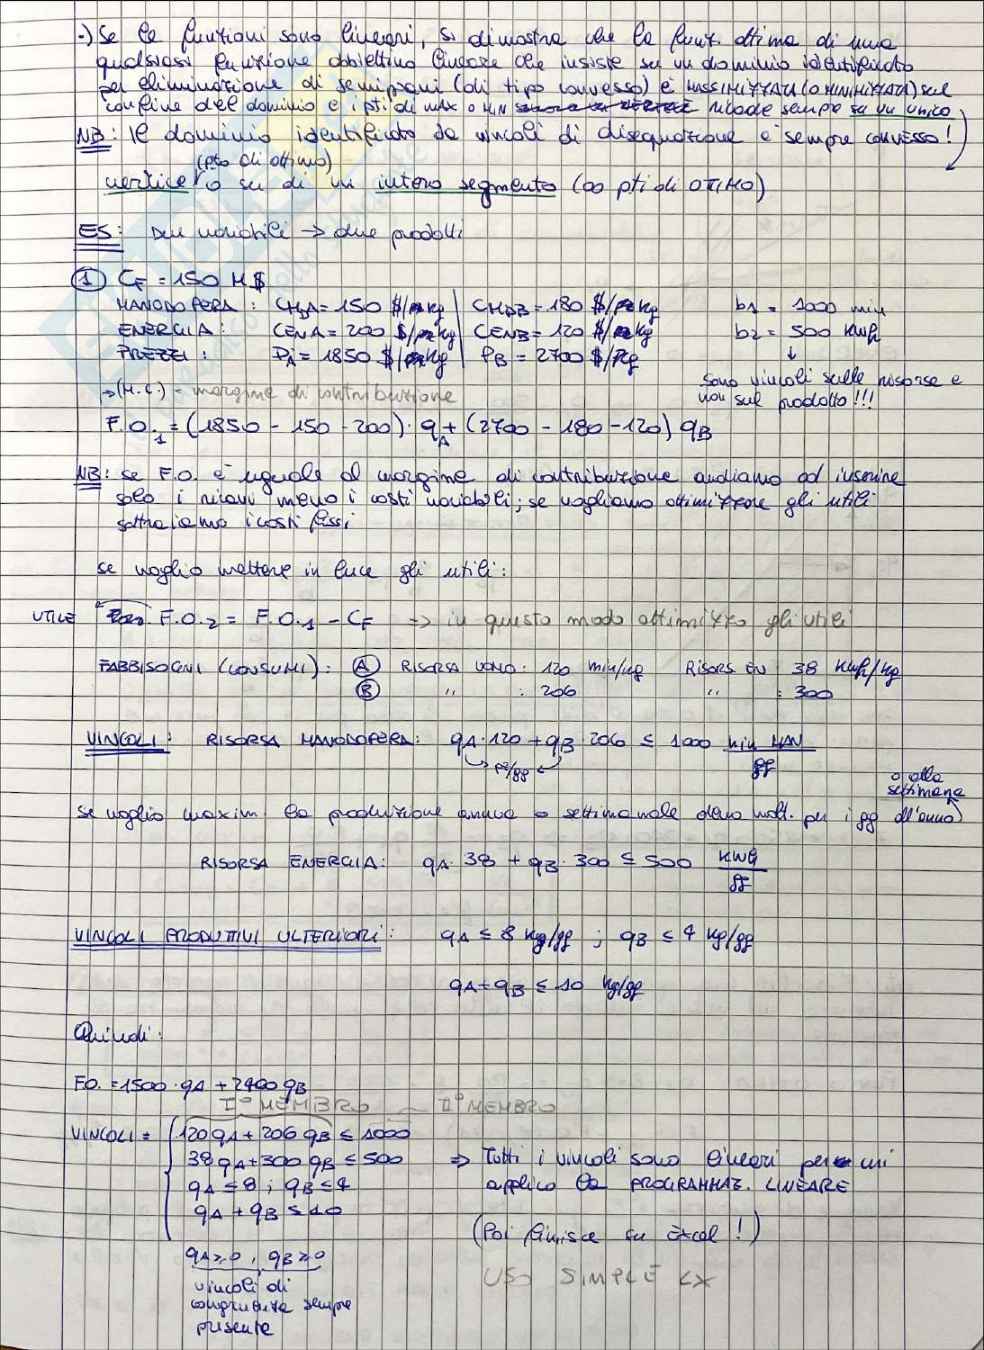 •) Se le funzioni sono lineari, si dimostra che la funz. ottima di una
qualsiasi funzione obbiettivo lineare che insiste su un dominio identificato
per eliminazione di semipiani (di tipo convesso) è MASSIMIZZATA (O MINIMIZZATA) sul
confine del dominio e i pti di MAX O MIN ricade sempre su un unico
NB: Il dominio identificato da vincoli di disequazione è sempre convesso!
(pto di ottimo)
vertice o su di un intero segmento (∞ pti di OTTIMO)
ES: Due variabili → due prodotti
① CF = 150 M$
MANODOPERA: CHDA = 150 $/kg | CHDB = 180 $/kg b1 = 1000 min
ENERGIA: CENA = 200 $/kg | CENB = 120 $/kg b2 = 500 KWh
PREZZI: PA = 1850 $/kg | PB = 2700 $/kg ↓
sono vincoli sulle risorse e
non sul prodotto!!!
→ (M.C.) = margine di contribuzione
F.O.1 = (1850 - 150 - 200) · qA + (2700 - 180 - 120) qB
NB: se F.O. è uguale al margine di contribuzione andiamo ad inserire
solo i ricavi meno i costi variabili; se vogliamo ottimizzare gli utili
sottraiamo i costi fissi
se voglio mettere in luce gli utili:
UTILE F.O.2 = F.O.1 - CF => in questo modo ottimizzo gli utili
FABBISOGNI (CONSUMI): Ⓐ RISORSA UOMO: 120 min/kg RISORS EN 38 KWh/Kg
Ⓑ " : 206 " : 300
VINCOLI: RISORSA MANODOPERA: qA · 120 + qB · 206 ≤ 1000 min MAN/gg
pz/gg
o alla
settimana
se voglio maxim. la produzione annua o settimanale devo molt. per i gg dell'anno
RISORSA ENERGIA: qA · 38 + qB · 300 ≤ 500 KWh/gg
VINCOLI PRODUTTIVI ULTERIORI: qA ≤ 8 kg/gg ; qB ≤ 4 kg/gg
qA + qB ≤ 10 kg/gg
Quindi:
FO. = 1500 · qA + 2400 qB
I° MEMBRO II° MEMBRO
VINCOLI = { 120 qA + 206 qB ≤ 1000
38 qA + 300 qB ≤ 500 => Tutti i vincoli sono lineari per cui
qA ≤ 8 ; qB ≤ 4 applico la PROGRAMMAZ. LINEARE
qA + qB ≤ 10
(Poi finisce su Excel!)
qA ≥ 0, qB ≥ 0
vincoli di USO SIMPLE LX
congruenza sempre
presente